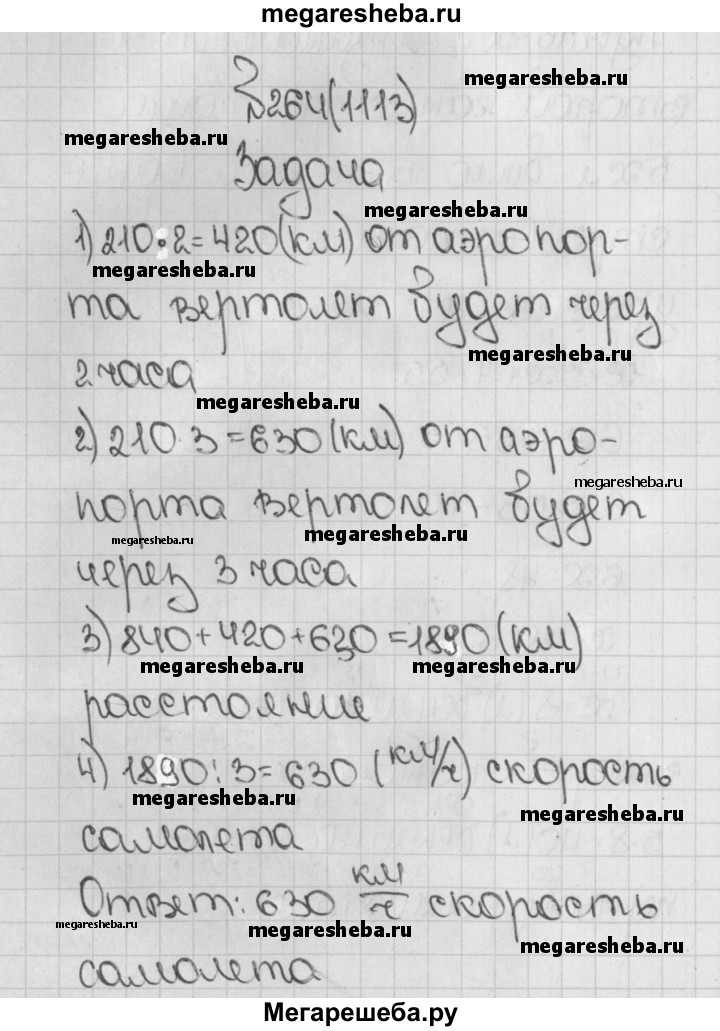 megaresheba.ru
megaresheba.ru
№264(1113)
megaresheba.ru
Задача
megaresheba.ru
1) 210·2=420(км) от аэропор-
megaresheba.ru
та вертолет будет через
megaresheba.ru
2 часа
megaresheba.ru
2) 210·3=630(км) от аэро-
megaresheba.ru
порта вертолет будет
megaresheba.ru
megaresheba.ru
через 3 часа
3) 840+420+630=1890(км)
megaresheba.ru
megaresheba.ru
расстояние
4) 1890:3=630 (км/ч) скорость
megaresheba.ru
megaresheba.ru
самолета
Ответ: 630 км/ч скорость
megaresheba.ru
megaresheba.ru
megaresheba.ru
самолета
Мегарешеба.ру